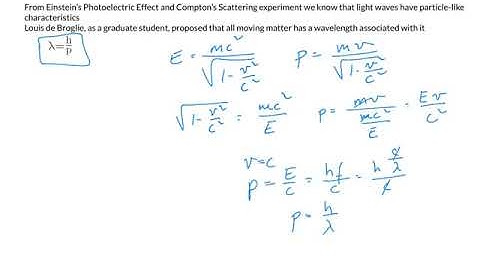 From Einstein's Photoelectric Effect and Compton's Scattering experiment we know that light waves have particle-like
characteristics
Louis de Broglie, as a graduate student, proposed that all moving matter has a wavelength associated with it
λ=h/p
E = mc²/√(1-v²/c²) p = mv/√(1-v²/c²)
√(1-v²/c²) = mc²/E p = mv/(mc²/E) = Ev/c²
v=c
p = E/c = hf/c = h(c/λ)/c
p = h/λ